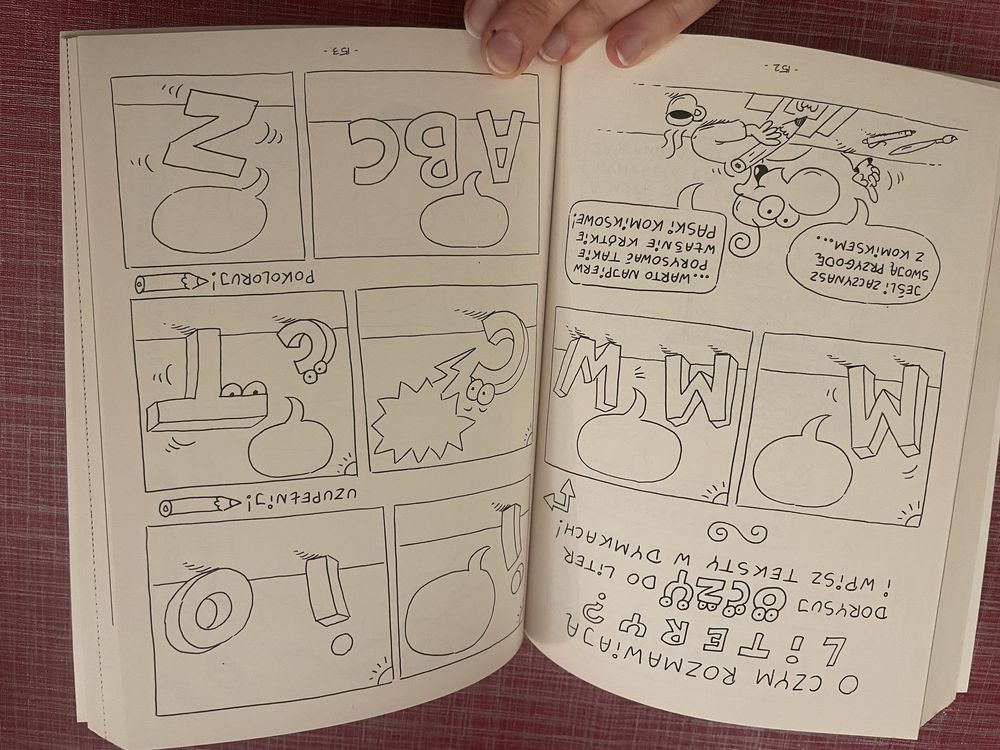 O CZYM ROZMAWIAJĄ
LITERY?
DORYSUJ OCZY DO LITER
I WPISZ TEKSTY W DYMKACH!
JEŚLI ZACZYNASZ
SWOJĄ PRZYGODĘ
Z KOMIKSEM...
...WARTO NAJPIERW
PORYSOWAĆ TAKIE
WŁAŚNIE KRÓTKIE
PASKI KOMIKSOWE!
- 152 -
!
! O
UZUPEŁNIJ!
?
? T
POKOLORUJ!
ABC
Z
- 153 -